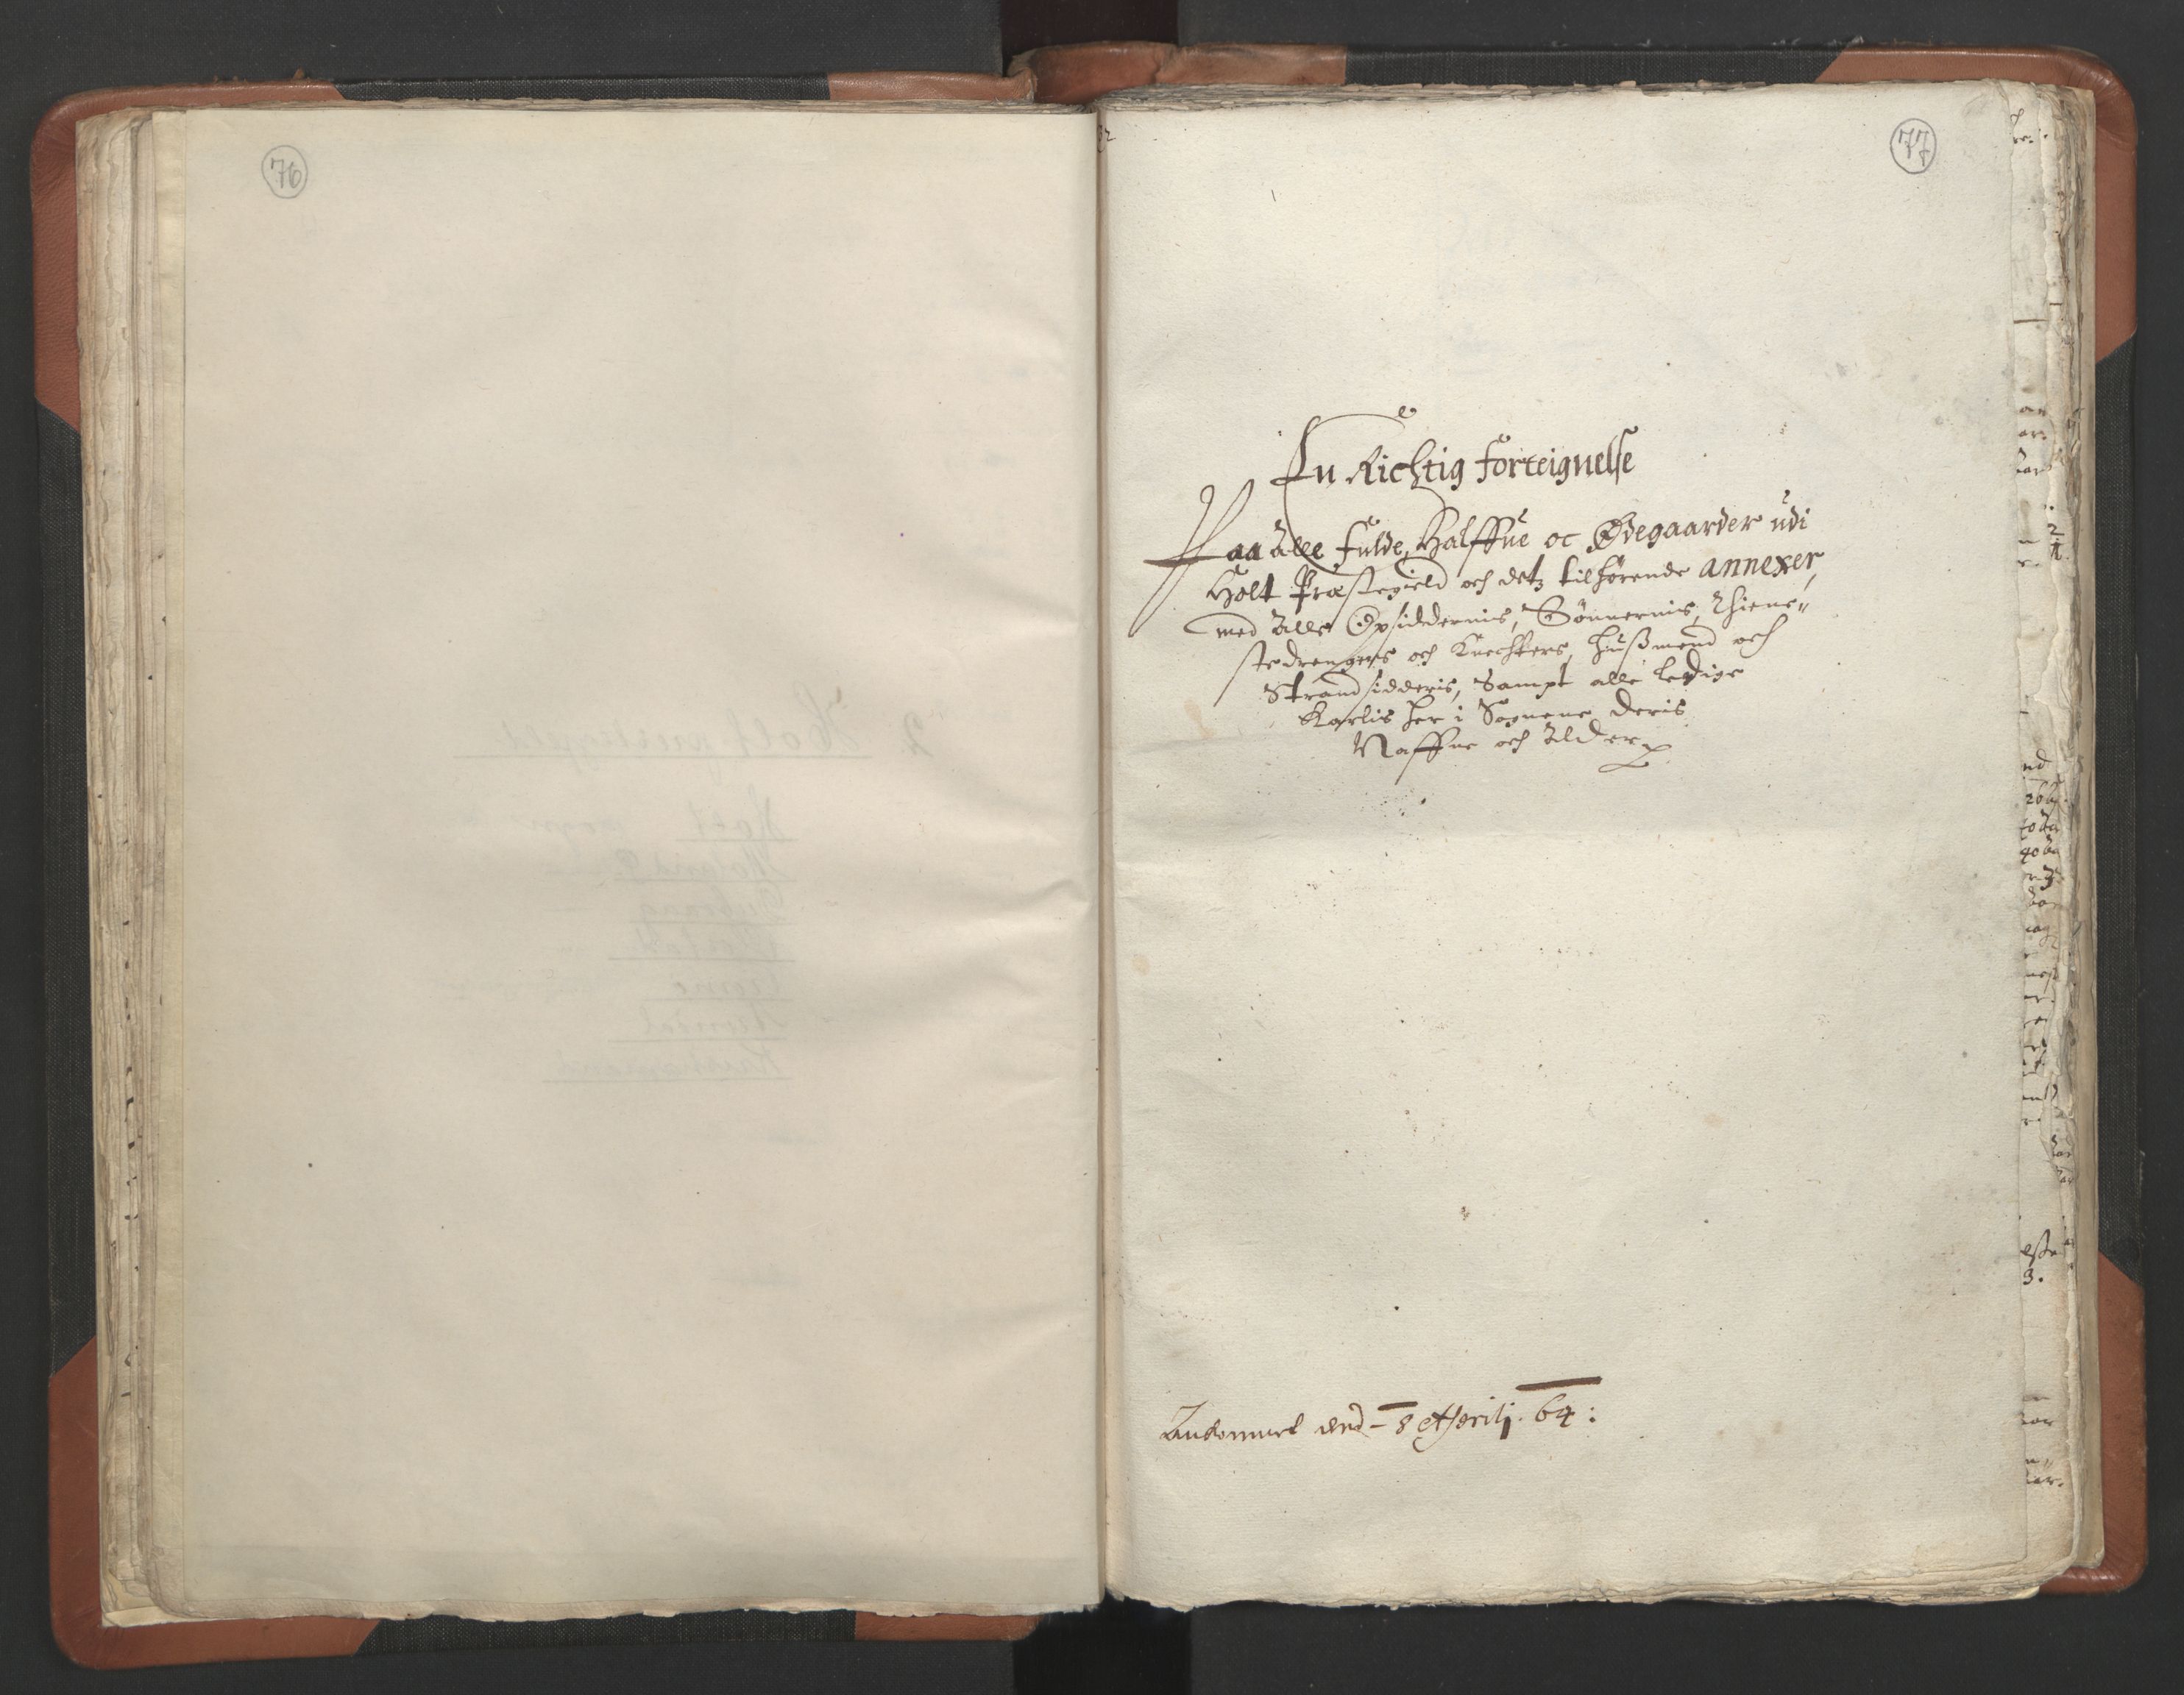 76
77
En Richtig forteignelse
Paa Alle fulde, Halffue oc Ødegaarder udi
Holt Præstegield och detz tilhørende annexer,
med Alle Opsiddernis, Sønnernis, Thiene-
stedrengers och Knechters, Hußmend och
Strandsidderis, Sampt alle ledige
Karlis her i Sognene deris
Naffne och Alder
Ankommed dend - 8 Aprilj. 64: